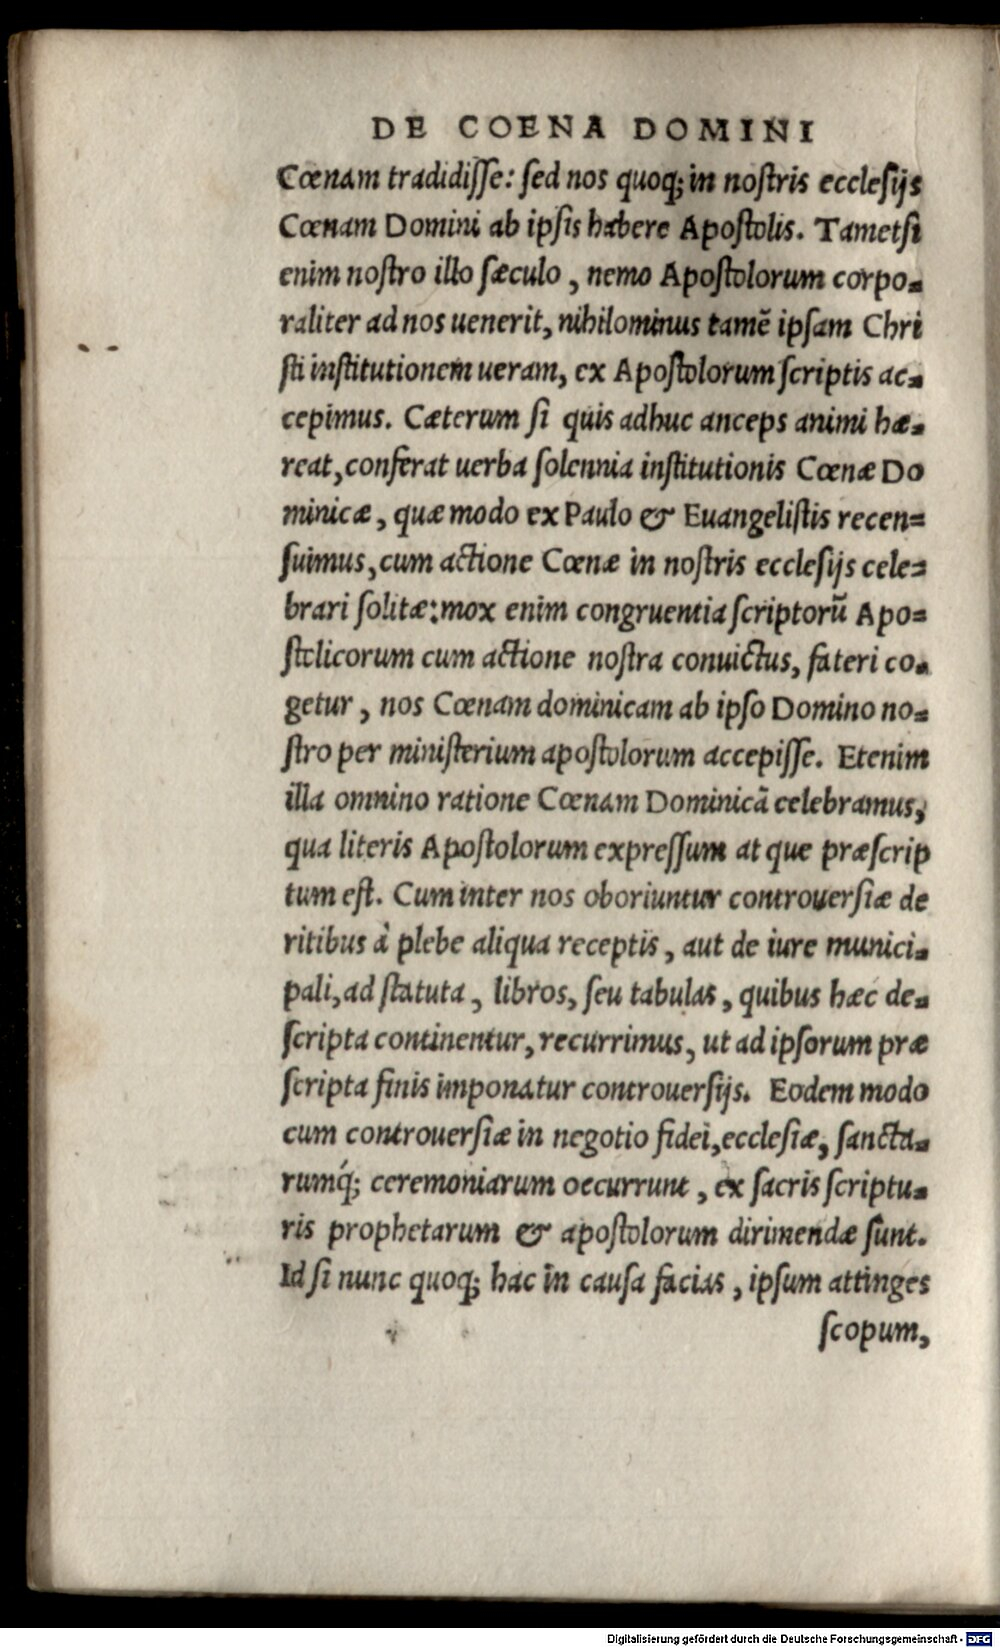 DE COENA DOMINI
Cœnam tradidiſſe: ſed nos quoq; in noſtris eccleſijs
Cœnam Domini ab ipſis habere Apoſtolis. Tametſi
enim noſtro illo ſæculo, nemo Apoſtolorum corpo=
raliter ad nos uenerit, nihilominus tamẽ ipſam Chri
ſti inſtitutionem ueram, ex Apoſtolorum ſcriptis ac=
cepimus. Cæterum ſi quis adhuc anceps animi hæ=
reat, conferat uerba ſolennia inſtitutionis Cœnæ Do
minicæ, quæ modo ex Paulo & Euangeliſtis recen=
ſuimus, cum actione Cœnæ in noſtris eccleſijs cele=
brari ſolitæ: mox enim congruentia ſcriptorũ Apo=
ſtolicorum cum actione noſtra conuictus, fateri co=
getur, nos Cœnam dominicam ab ipſo Domino no=
ſtro per miniſterium apoſtolorum accepiſſe. Etenim
illa omnino ratione Cœnam Dominicã celebramus,
qua literis Apoſtolorum expreſſum at que præſcrip
tum eſt. Cum inter nos oboriuntur controuerſiæ de
ritibus à plebe aliqua receptis, aut de iure munici=
pali, ad ſtatuta, libros, ſeu tabulas, quibus hæc de=
ſcripta continentur, recurrimus, ut ad ipſorum præ
ſcripta finis imponatur controuerſijs. Eodem modo
cum controuerſiæ in negotio fidei, eccleſiæ, ſancta=
rumq́; ceremoniarum oecurrunt, ex ſacris ſcriptu=
ris prophetarum & apoſtolorum dirimendæ ſunt.
Id ſi nunc quoq; hac in cauſa facias, ipſum attinges
ſcopum,
Digitalisierung gefördert durch die Deutsche Forschungsgemeinschaft - DFG